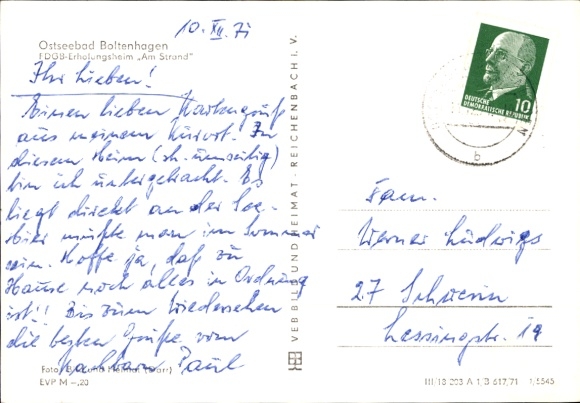 10. XII. 71
Ostseebad Boltenhagen
FDGB-Erholungsheim „Am Strand"
Ihr Lieben!
Einen lieben Kartengruß
aus meinem Kurort. In
diesem Heim (sh. umseitig)
bin ich untergebracht. Es
liegt direkt an der See.
Hier müßte man im Sommer
sein. Hoffe ja, daß zu
Hause noch alles in Ordnung
ist!! Bis zum Wiedersehen
die besten Grüße vom
Nachbarn Paul
Foto: Bild und Heimat (Darr)
EVP M –,20
VEB BILD UND HEIMAT · REICHENBACH I. V.
10
DEUTSCHE
DEMOKRATISCHE REPUBLIK
b
Fam.
Werner Ludwigs
27 Schwerin
Lessingstr. 19
III/18 203 A 1 B 617/71 1/5545